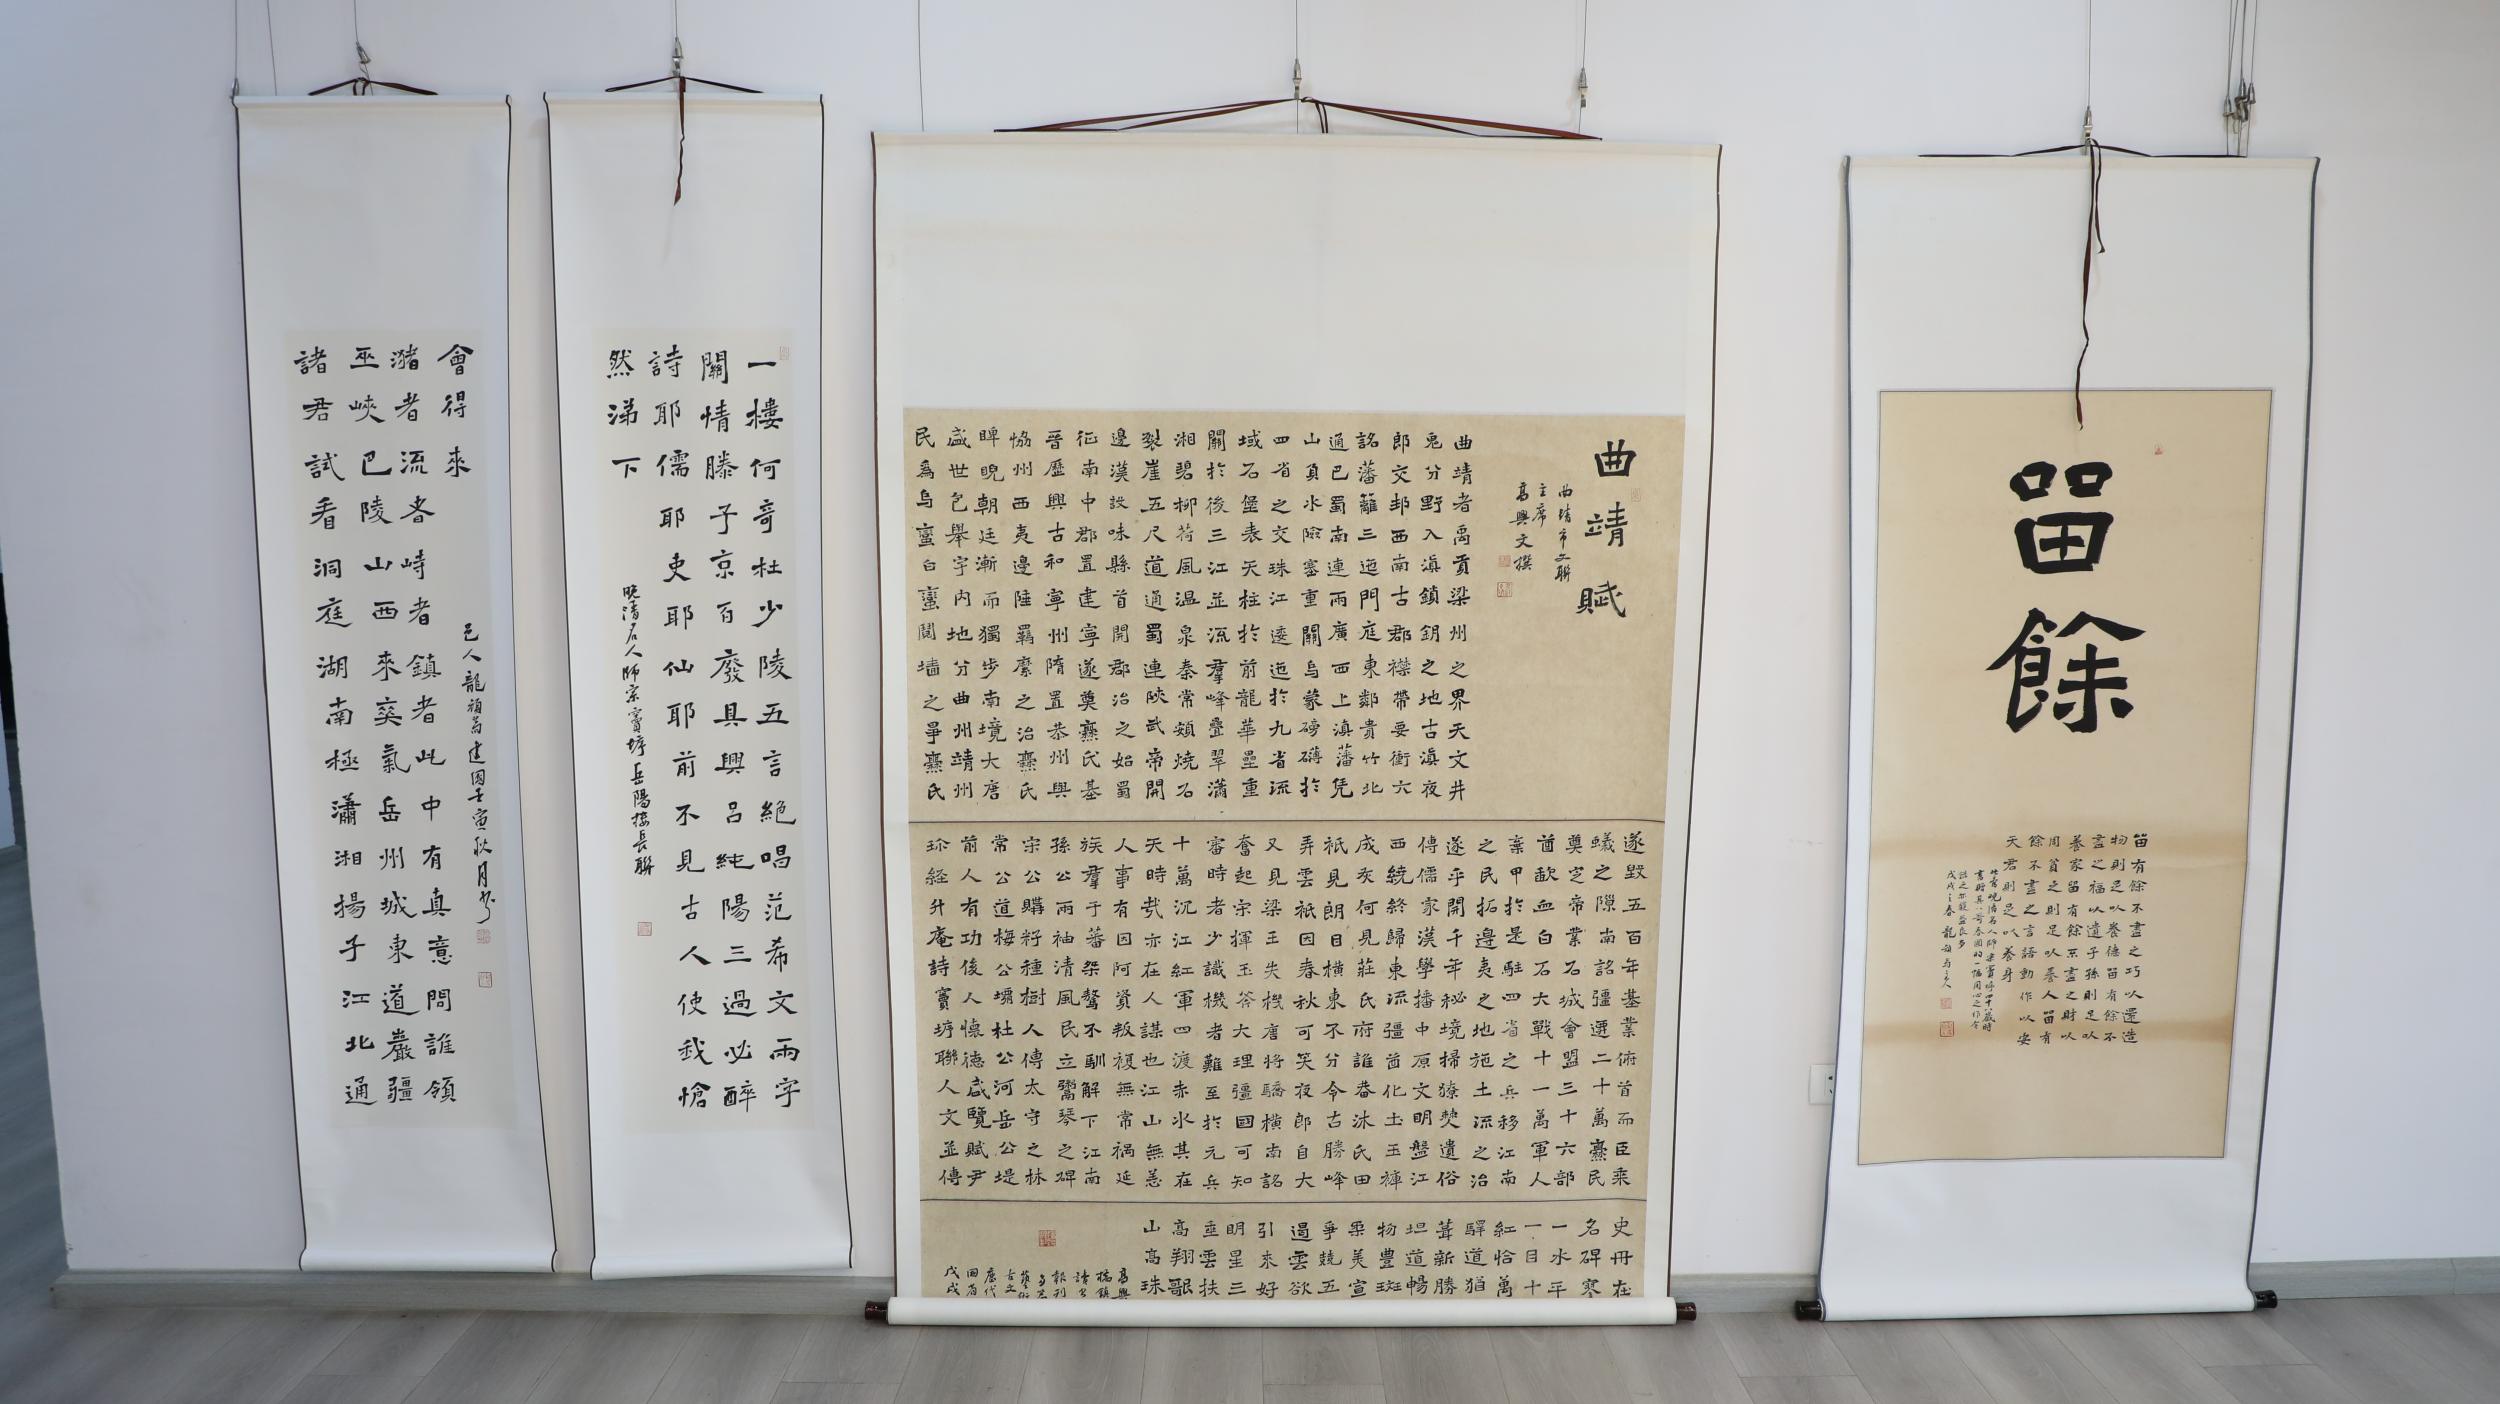 畱餘
畱有餘不盡之巧以還造
物則足以養德畱有餘不
盡之福以遺子孫則足以
養家畱有餘不盡之財以
周貧乏則足以養人畱有
餘不盡之言語動作以安
天君則足以養身
此為晚清名人師宗竇垿四十八歲時
書贈其八哥春園的一幅用心之作今
臨之亦頗益良多
戊戌之春龍
曲靖賦
曲靖市文聯
主席
高興文撰
曲靖者禹貢梁州之界天文井
鬼分野入滇鎮鑰之地古滇夜
郎交邦西南古郡襟帶要衝六
詔藩籬三迤門庭東鄰貴竹北
通巴蜀南連兩廣西上滇藩凭
山負水險塞重關烏蒙磅礴於
四省之交珠江逶迤於九省流
域石堡表天柱於前龍華壘重
關於後三江並流羣峰疊翠瀟
湘碧柳荷風温泉秦常頰燒石
裂崖五尺道通蜀連陝武帝開
邊漢設味縣首開郡治之始蜀
征南中郡置建寧遂奠爨氏基
晉歷興古和寧州隋置恭州與
恊州西夷邊陲羈縻之治爨氏
睥睨朝廷漸而獨步南境大唐
盛世包舉宇内地分曲州靖州
民為烏蠻白蠻鬩墻之爭爨氏
遂毀五百年基業俯首而臣乘
蟻之隙南詔彊遷二十萬爨民
奠定帝業石城會盟三十六部
酋歃血白石大戰十一萬軍人
棄甲於是駐四省之兵移江南
之民拓邊夷之地施土流之治
遂乎開千年秘境掃獠僰遺俗
傳儒家漢學播中原文明盤江
西繞終歸東流彊酋化土玉褲
成灰何見莊氏府誰眷沐氏田
祇見朗目橫東不分今古勝峰
弄雲祇因春秋可笑夜郎自大
又見梁王失機唐將驕橫南詔
奮起宗揮玉斧大理彊國可知
審時者少識機者難至於元兵
十萬沉江紅軍四渡赤水其在
天時哉亦在人謀也江山無恙
人事有因阿資叛複無常禍延
族羣于蕃桀驁不馴解下江南
孫公兩袖清風民立鬻琴之碑
宗公購籽種樹人傳太守之林
常公道梅公壩杜公河岳公堤
前人有功後人懷德咸覽賦尹
珎経升庵詩竇垿聯人文並傳
史冊在
名碑寒
一水年
一目十
紅恰萬
驛道猶
葺新勝
坦道暢
物豊斑
栗美宣
爭競五
過雲欲
引來好
明星三
垂雲扶
高翔歌
山高珠
戊戌
一樓何奇杜少陵五言絶唱范希文兩字
關情滕子京百廢具興呂純陽三過必醉
詩耶儒耶吏耶仙耶前不見古人使我愴
然涕下
晚清名人師宗竇垿岳陽樓長聯
諸君試看洞庭湖南極瀟湘揚子江北通
巫峽巴陵山西來爽氣岳州城東道巖疆
瀦者流者峙者鎮者此中有真意問誰領
會得來
邑人龍頫為建國壬寅秋月